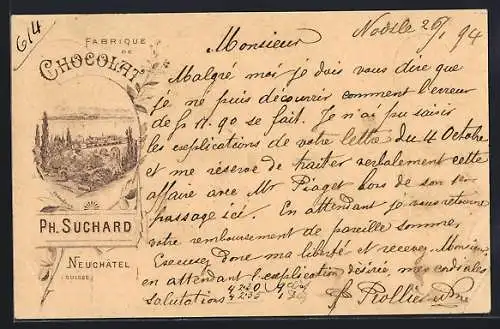 6/4
FABRIQUE
DE
CHOCOLAT
PH. SUCHARD
NEUCHÂTEL
(SUISSE)
26/1 94
Monsieur
Malgré moi je dois vous dire que
je ne puis découvrir comment l'erreur
de fr 11.90 se fait. Je n'ai pu saisir
les explications de votre lettre du 4 Octobre
et me réserve de traiter verbalement cette
affaire avec Mr Piaget lors de son
passage ici. En attendant je vous retourne
votre remboursement de pareille somme.
Excusez donc ma liberté et recevez, Monsieur,
en attendant l'explication désirée, mes cordiales
salutations